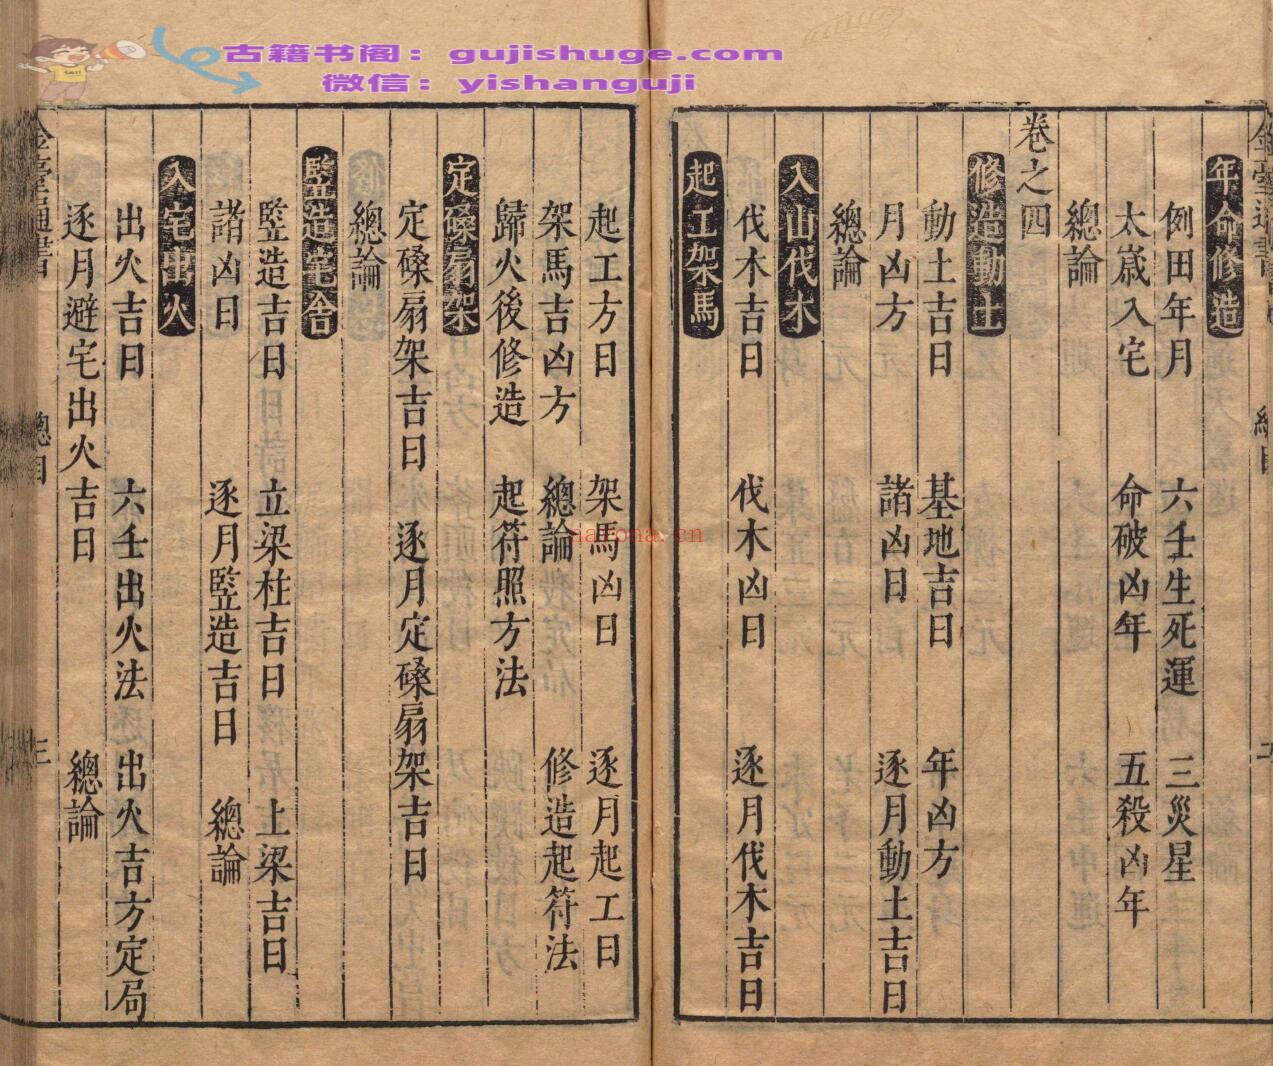 古籍书阁：gujishuge.com
微信：yishanguji
年命修造
例田年月 六壬生死運 三災星
太歲入宅 命破凶年 五殺凶年
總論
卷之四
修造動土
動土吉日 基地吉日 年凶方
月凶方 諸凶日 逐月動土吉日
總論
入山伐木
伐木吉日 伐木凶日 逐月伐木吉日
起工架馬
起工方日 架馬凶日 逐月起工日
架馬吉凶方 總論 修造起符法
歸火後修造 起符照方法
定磉扇架
定磉扇架吉日 逐月定磉扇架吉日
總論
竪造宅舍
竪造吉日 立梁柱吉日 上梁吉日
諸凶日 逐月竪造吉日 總論
入宅出火
出火吉日 六壬出火法 出火吉方定局
逐月避宅出火吉日 總論
總目
三
nayona.cn